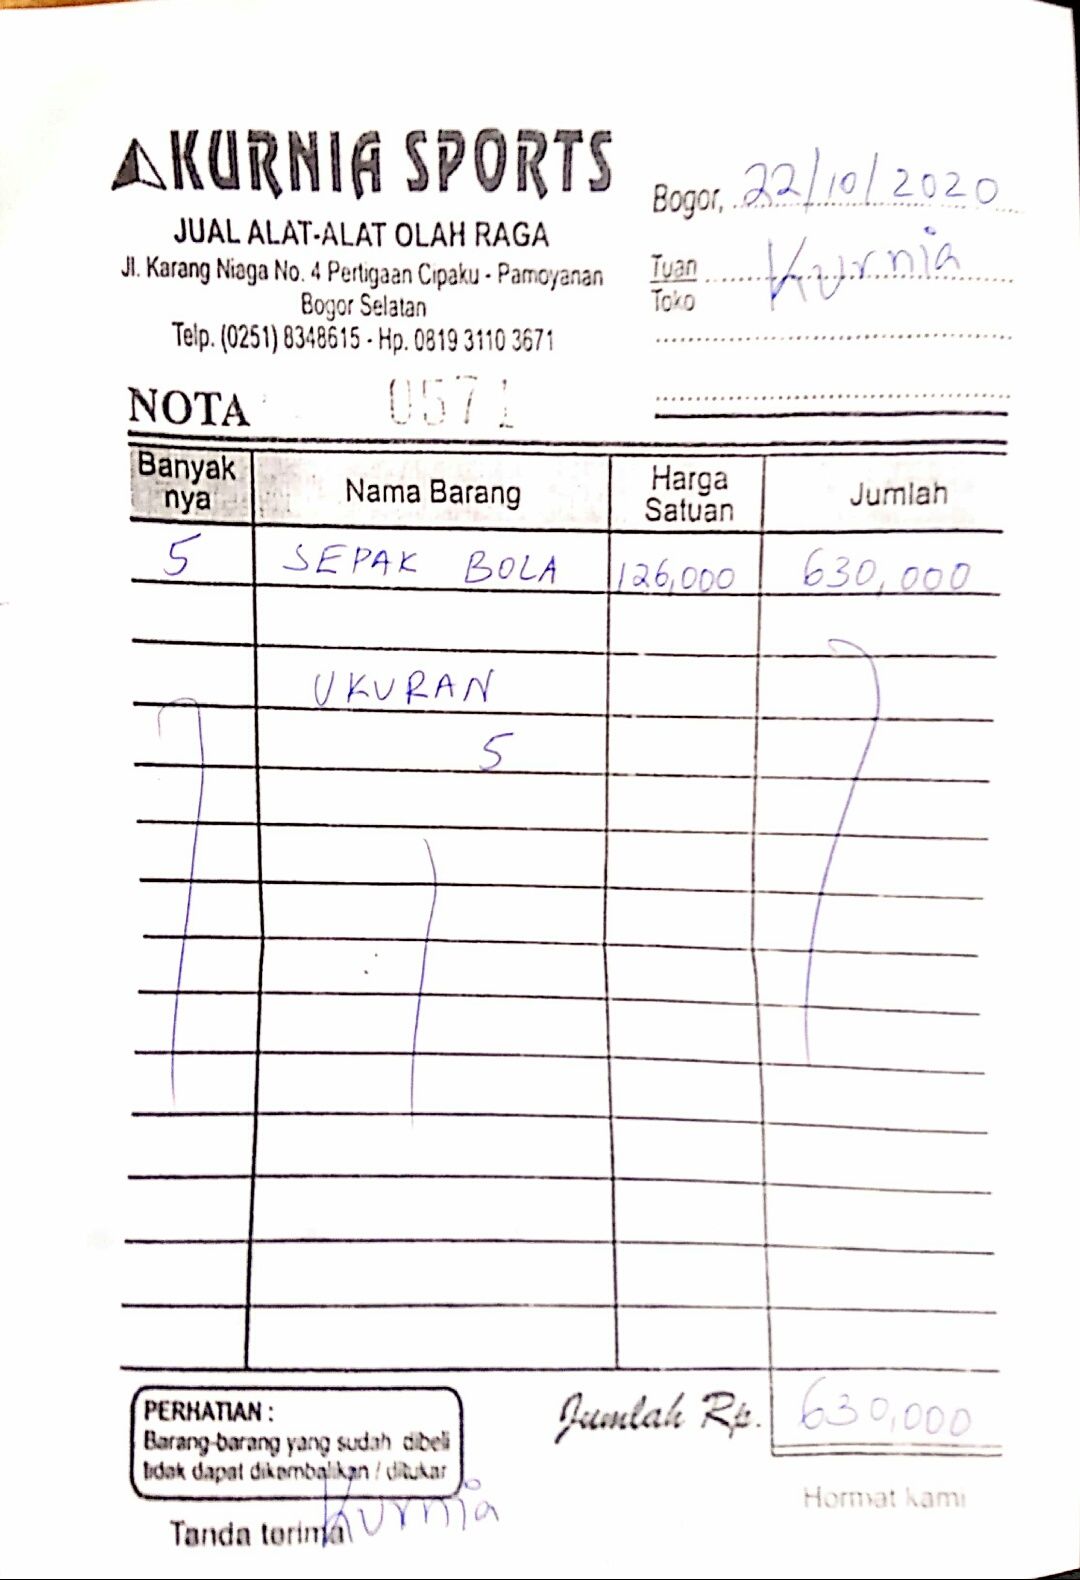 KURNIA SPORTS
JUAL ALAT-ALAT OLAH RAGA
Jl. Karang Niaga No. 4 Pertigaan Cipaku - Pamoyanan
Bogor Selatan
Telp. (0251) 8348615 - Hp. 0819 3110 3671
Bogor, 22/10/2020
Tuan
Toko
Kurnia
NOTA 0571
Banyak nya Nama Barang Harga Satuan Jumlah
5 SEPAK BOLA 126,000 630,000
UKURAN
5
Jumlah Rp. 630,000
PERHATIAN :
Barang-barang yang sudah dibeli
tidak dapat dikembalikan / ditukar
Tanda terima
Kurnia
Hormat kami